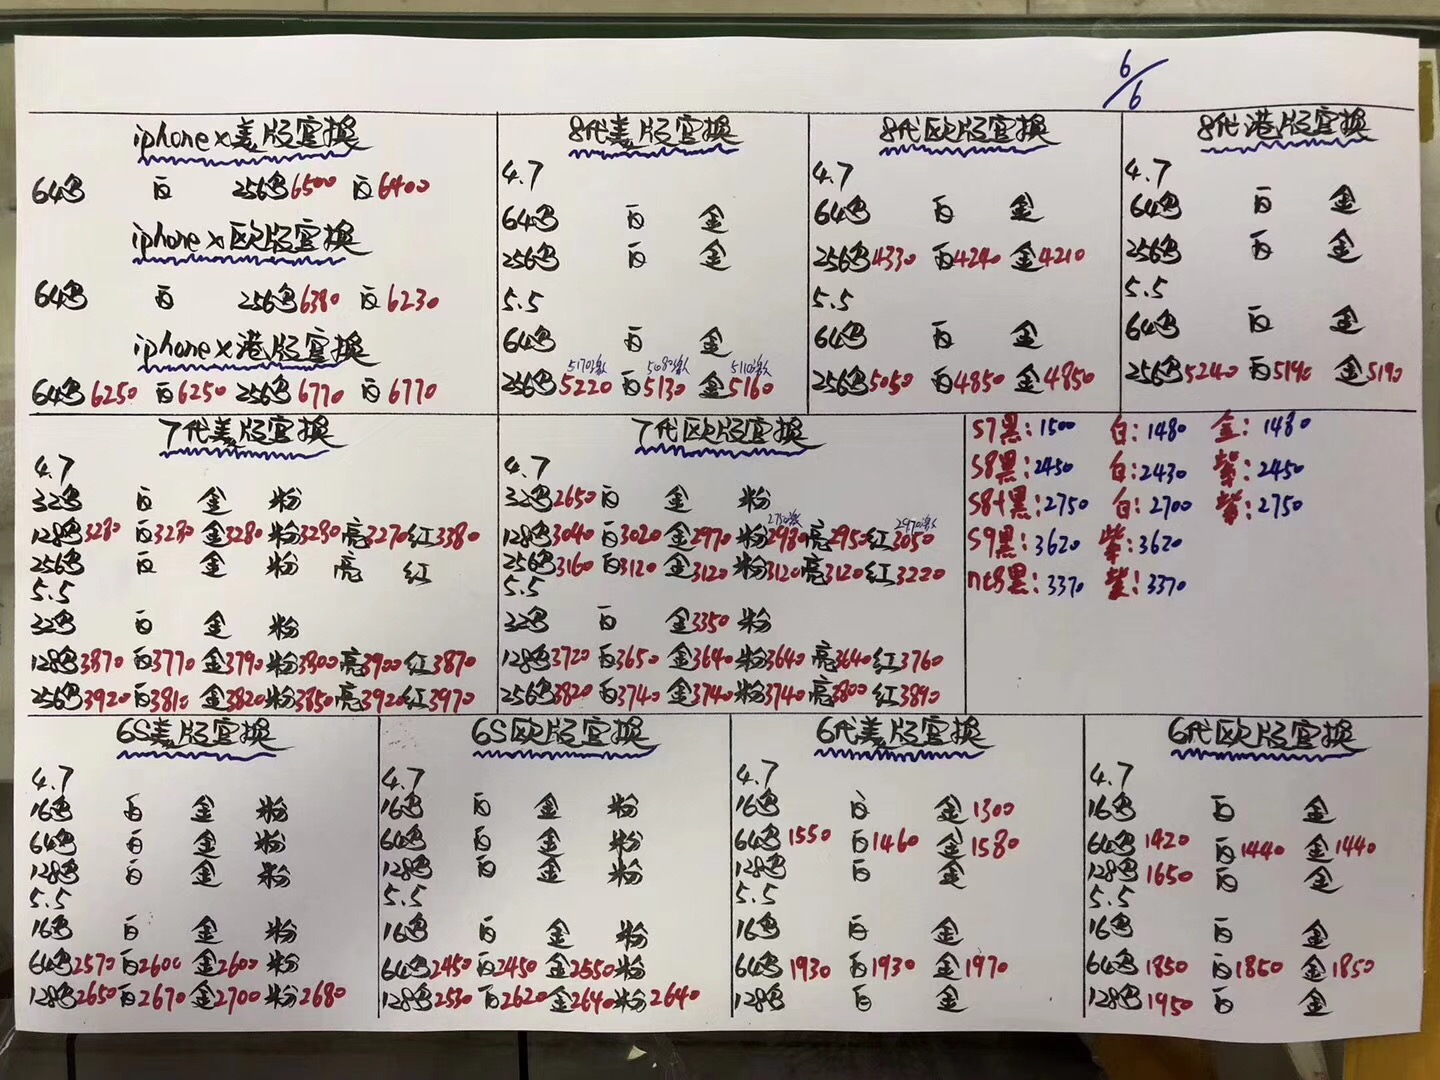 6/6
iphone x美版官换
64黑 白 256黑6500 白6400
iphone x欧版官换
64黑 白 256黑6380 白6230
iphone x港版官换
64黑6250 白6250 256黑6770 白6770
8代美版官换
4.7
64黑 白 金
256黑 白 金
5.5
64黑 白 金
5170激 5080激 5110激
256黑5220 白5130 金5160
8代欧版官换
4.7
64黑 白 金
256黑4330 白4240 金4210
5.5
64黑 白 金
256黑5050 白4850 金4850
8代港版官换
4.7
64黑 白 金
256黑 白 金
5.5
64黑 白 金
256黑5240 白5190 金5190
7代美版官换
4.7
32黑 白 金 粉
128黑3280 白3280 金3280 粉3280 亮3270 红3380
256黑 白 金 粉 亮 红
5.5
32黑 白 金 粉
128黑3870 白3770 金3790 粉3800 亮3900 红3870
256黑3920 白3810 金3820 粉3850 亮3920 红3970
7代欧版官换
4.7
32黑2650 白 金 粉
2750激 2970激
128黑3040 白3020 金2970 粉2980 亮2950 红3050
256黑3160 白3120 金3120 粉3120 亮3120 红3220
5.5
32黑 白 金3350 粉
128黑3720 白3650 金3640 粉3640 亮3640 红3760
256黑3820 白3740 金3740 粉3740 亮3800 红3890
S7黑:1500 白:1480 金:1480
S8黑:2450 白:2430 紫:2450
S8+黑:2750 白:2700 紫:2750
S9黑:3620 紫:3620
nt8黑:3370 紫:3370
6S美版官换
4.7
16黑 白 金 粉
64黑 白 金 粉
128黑 白 金 粉
5.5
16黑 白 金 粉
64黑2570 白2600 金2600 粉
128黑2650 白2670 金2700 粉2680
6S欧版官换
4.7
16黑 白 金 粉
64黑 白 金 粉
128黑 白 金 粉
5.5
16黑 白 金 粉
64黑2450 白2450 金2550 粉
128黑2530 白2620 金2640 粉2640
6代美版官换
4.7
16黑 白 金1300
64黑1550 白1460 金1580
128黑 白 金
5.5
16黑 白 金
64黑1930 白1930 金1970
128黑 白 金
6代欧版官换
4.7
16黑 白 金
64黑1420 白1440 金1440
128黑1650 白 金
5.5
16黑 白 金
64黑1850 白1850 金1850
128黑1950 白 金